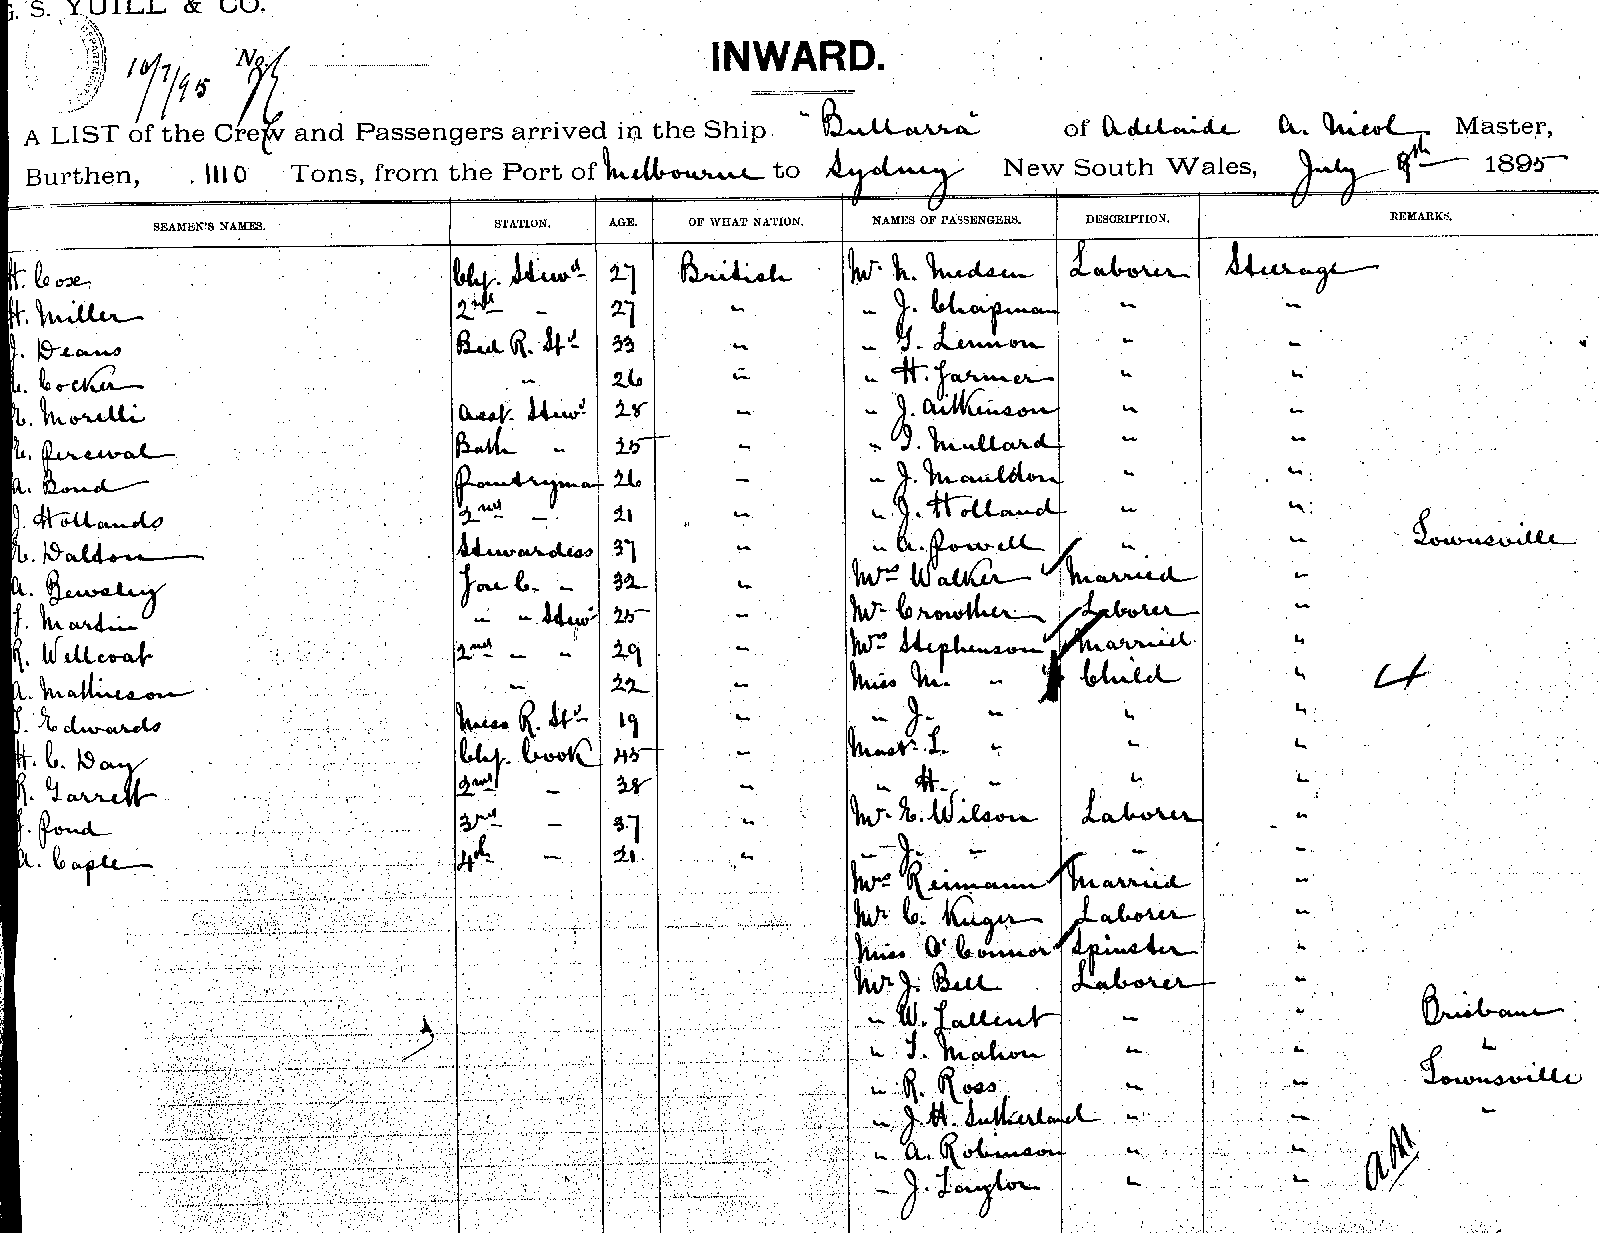 G. S. YUILL & CO.
10/7/95
INWARD.
A LIST of the Crew and Passengers arrived in the Ship "Bullarra" of Adelaide A. Nicol Master,
Burthen, 1110 Tons, from the Port of Melbourne to Sydney New South Wales, July 8th 1895
SEAMEN'S NAMES. STATION. AGE. OF WHAT NATION. NAMES OF PASSENGERS. DESCRIPTION. REMARKS.
H. Cose Chf. Stewd 27 British Mr. N. Medsen Laborer Steerage
H. Miller 2nd " 27 " " J. Chapman " "
J. Deans Bed R. Std 33 " " T. Lennon " "
Cocker " 26 " " H. Farmer " "
Morelli Asst. Stewd 28 " " J. Aitkinson " "
Percival Bath " 25 " " T. Mullard " "
A. Bond Pantryman 26 " " J. Mauldon " "
J. Hollands 2nd " 21 " " J. Holland " "
Dalton Stewardess 37 " " A. Powell " " Townsville
A. Bewsley Fore C. " 32 " Mrs Walker Married "
J. Martin " " Stewd 25 " Mr Crowther Laborer "
R. Wellcoat 2nd " " 29 " Mrs Stephenson Married "
A. Mathieson " 22 " Miss M. " Child " 4
Edwards Mess R. Std 19 " " J. " " "
H. C. Day Chf. Cook 45 " Mastr L. " " "
R. Garrett 2nd " 38 " " H. " " "
J. Pond 3rd " 37 " Mr. E. Wilson Laborer "
A. Caple 4th " 21 " " J. " " "
Mrs Reimann Married "
Mr C. Kuger Laborer "
Miss O'Connor Spinster "
Mr J. Bell Laborer "
" W. Tallent " " Brisbane
" T. Mahon " " "
" R. Ross " " Townsville
" J. H. Sutherland " " "
" A. Robinson " "
" J. Taylor " "